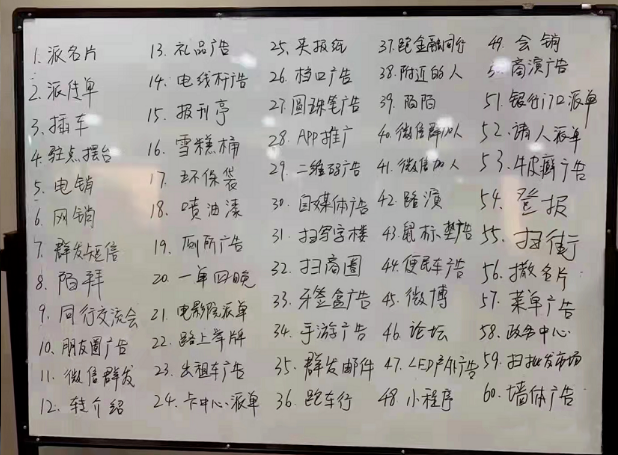 1. 派名片
2. 派传单
3. 插车
4. 驻点摆台
5. 电销
6. 网销
7. 群发短信
8. 陌拜
9. 同行交流会
10. 朋友圈广告
11. 微信群发
12. 转介绍
13. 礼品广告
14. 电线杆广告
15. 报刊亭
16. 雪糕桶
17. 环保袋
18. 喷油漆
19. 厕所广告
20. 一单四晚
21. 电影院派单
22. 路上举牌
23. 出租车广告
24. 卡中心派单
25. 买报纸
26. 档口广告
27. 圆珠笔广告
28. APP推广
29. 二维码广告
30. 自媒体广告
31. 扫写字楼
32. 扫商圈
33. 牙签盒广告
34. 手游广告
35. 群发邮件
36. 跑车行
37. 跑金融同行
38. 附近的人
39. 陌陌
40. 微信群加人
41. 微信加人
42. 路演
43. 鼠标垫广告
44. 便民车广告
45. 微博
46. 论坛
47. LED户外广告
48. 小程序
49. 会销
商演广告
51. 银行门口派单
52. 请人派单
53. 牛皮癣广告
54. 登报
55. 扫街
56. 撒名片
57. 菜单广告
58. 政务中心
59. 扫批发市场
60. 墙体广告